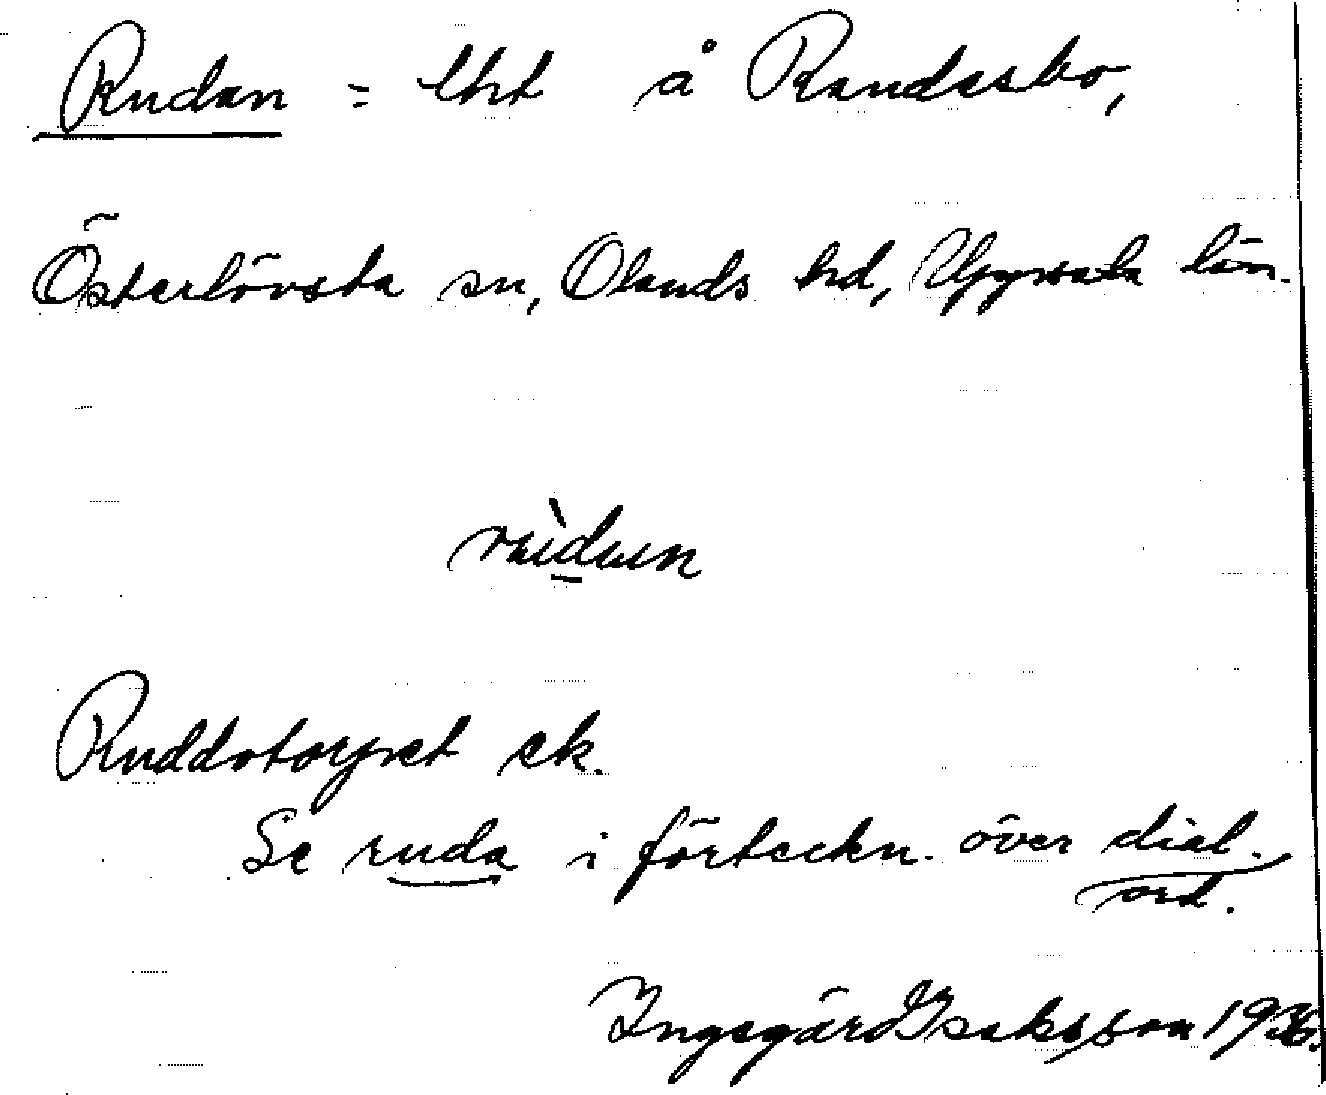 Rudan = lht å Randasbo,
Österlövsta sn, Olands hd, Uppsala län.
Ruddotorpet ek.
Se ruda i förteckn. över dial.
ord.
Ingegärd Isaksson 1936.